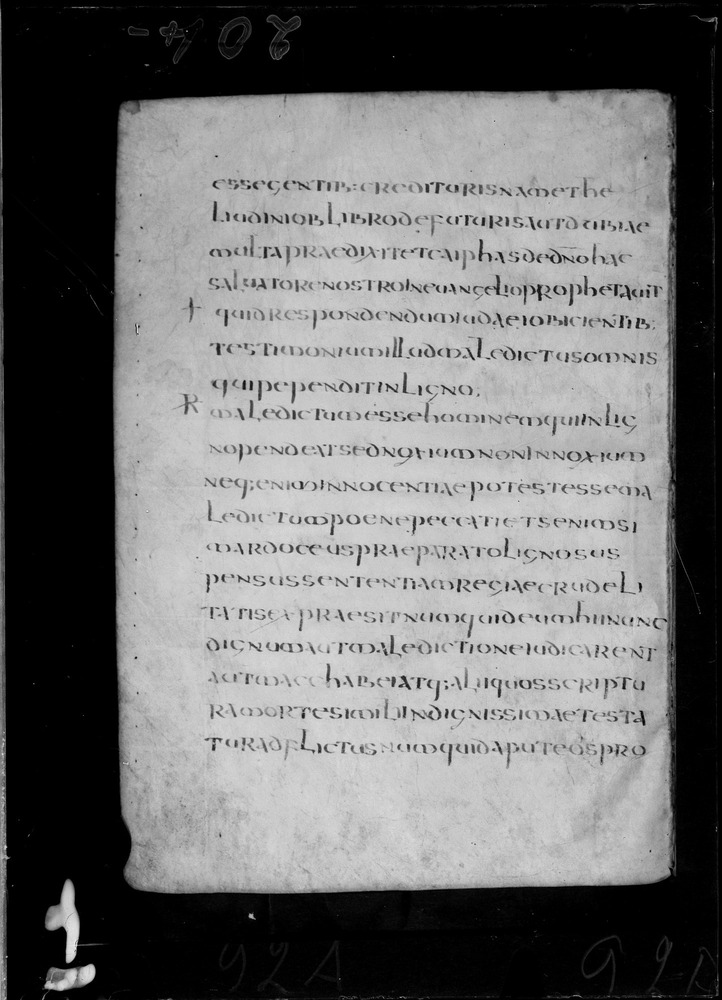 204-
essegentib:crediturisnamethe
liudiniobLibrodefuturisautdubiae
multapraedixitetcaiphasdedn̄ohac
saluatorenostroineuangelioprophetauit
+ quidrespondendumiudaeiobicientib:
testimoniumilludmaledictusomnis
quipependitinligno;
R maledictumessehominemquiinlig
nopendeatsednoxiumnoninnoxium
neq;eniminnocentiaepotestessema
ledictumpoenepeccatietsenimsi
mardoceuspraeparatolignosus
pensussententiamregiaecrudeli
tatisexpraesitnumquideumhiinunc
dignumautmaledictioneiudicarent
autmacchabeiatq;aliquosscriptu
ramortesimiliindignissimaetesta
turadflictusnumquidaputeosPro
92A